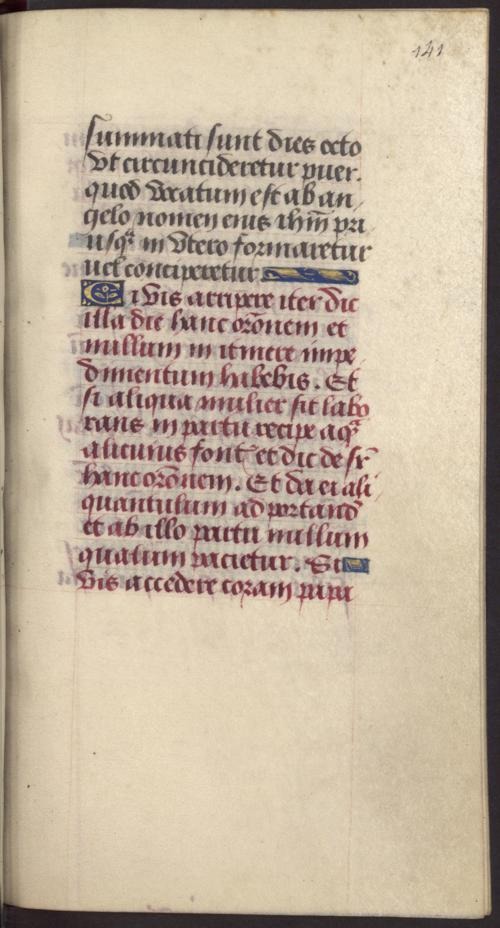 141
summati sunt dies octo
vt circuncideretur puer.
quod vocatum est ab an,
gelo nomen eius ihm̄ pri
usq̄ in vtero formaretur
uel conciperetur
Si vis accipere iter dic
illa die hanc orōnem et
nullum in itinere impe,
dimentum habebis. Et
si aliqua mulier sit labo
rans in partu recipe aq̄
alicuius font et dic de sr̄
hanc orōnem. Et da ei ali
quantulum ad portand
et ab illo partu nullum
quatum pacietur. Si
vis accedere coram papa